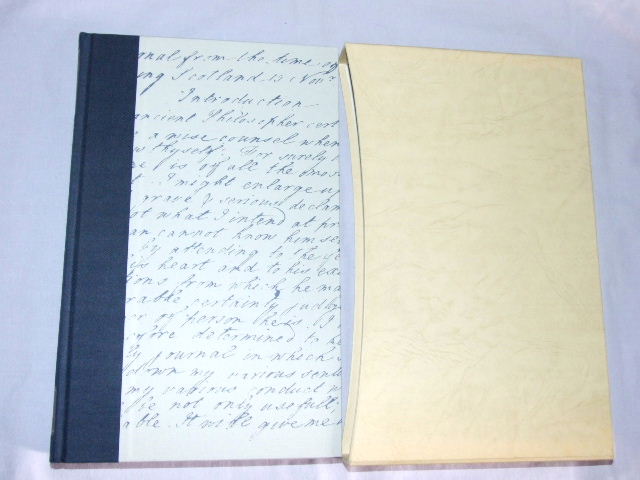 nal from the time
ng Scotland 15 Nov.
Introduction
ancient Philosopher cert
a wise counsel when
thyself. For surely
is of all the most
I might enlarge up
grave & serious declam
what I intend at pr
an cannot know himse
by attending to the
heart and to his ex
tions from which he ma
rable certainty judg
of person he is. I
fore determined to
ly journal in which
down my various sent
my various conduct w
be not only usefull,
able. It will give me